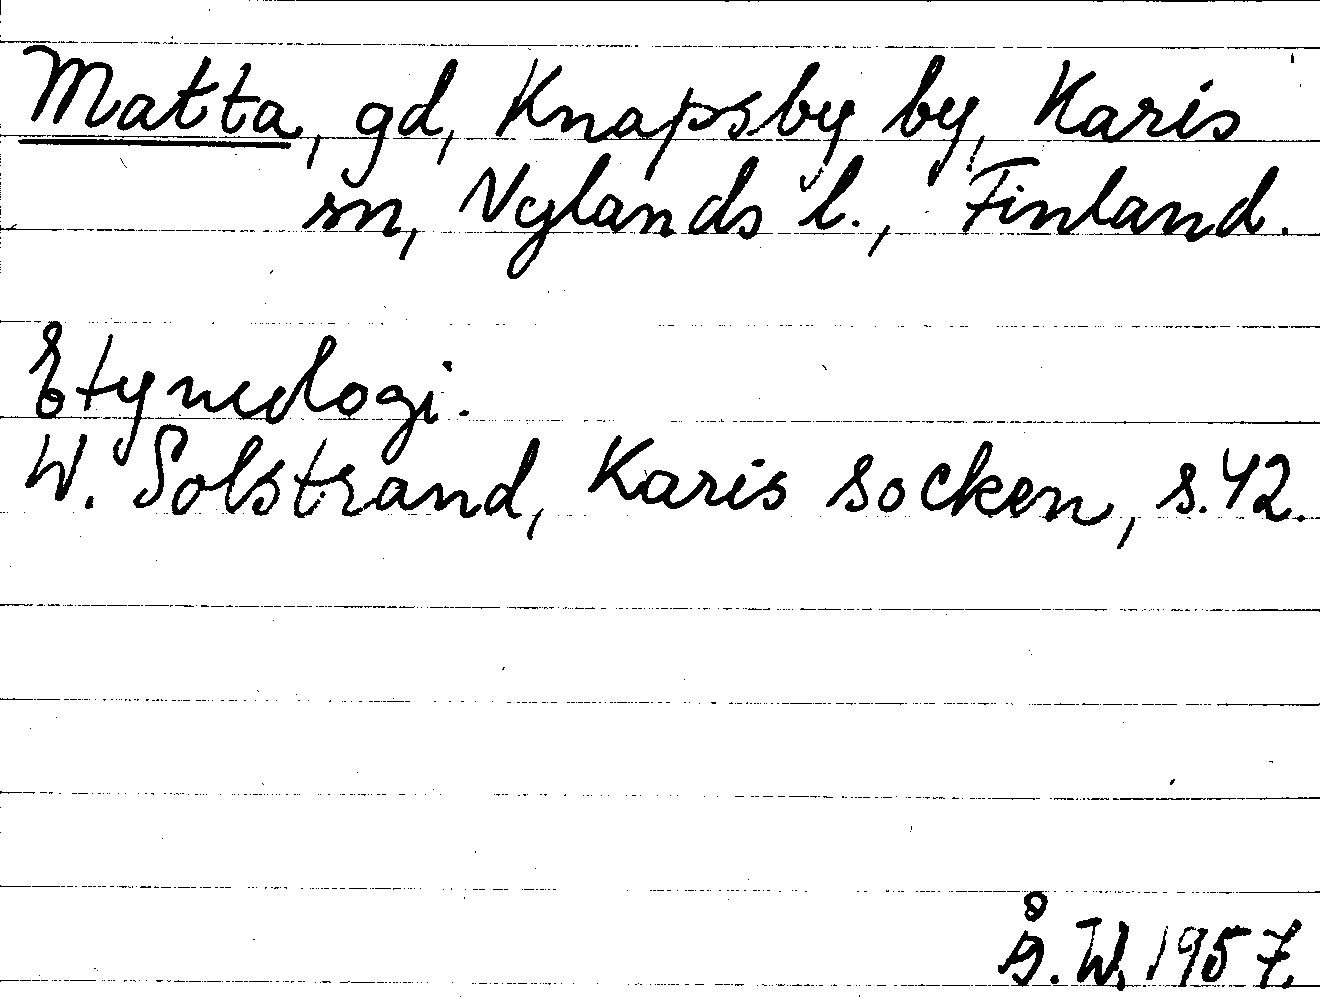 Matta, gd, Knapsby by, Karis
sn, Nylands l., Finland.
Etymologi.
W. Solstrand, Karis socken, s. 42.
Å. W. 1957.